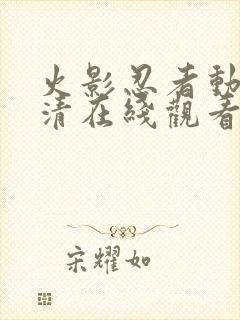 火影忍者動
清在綫觀看
宋耀如